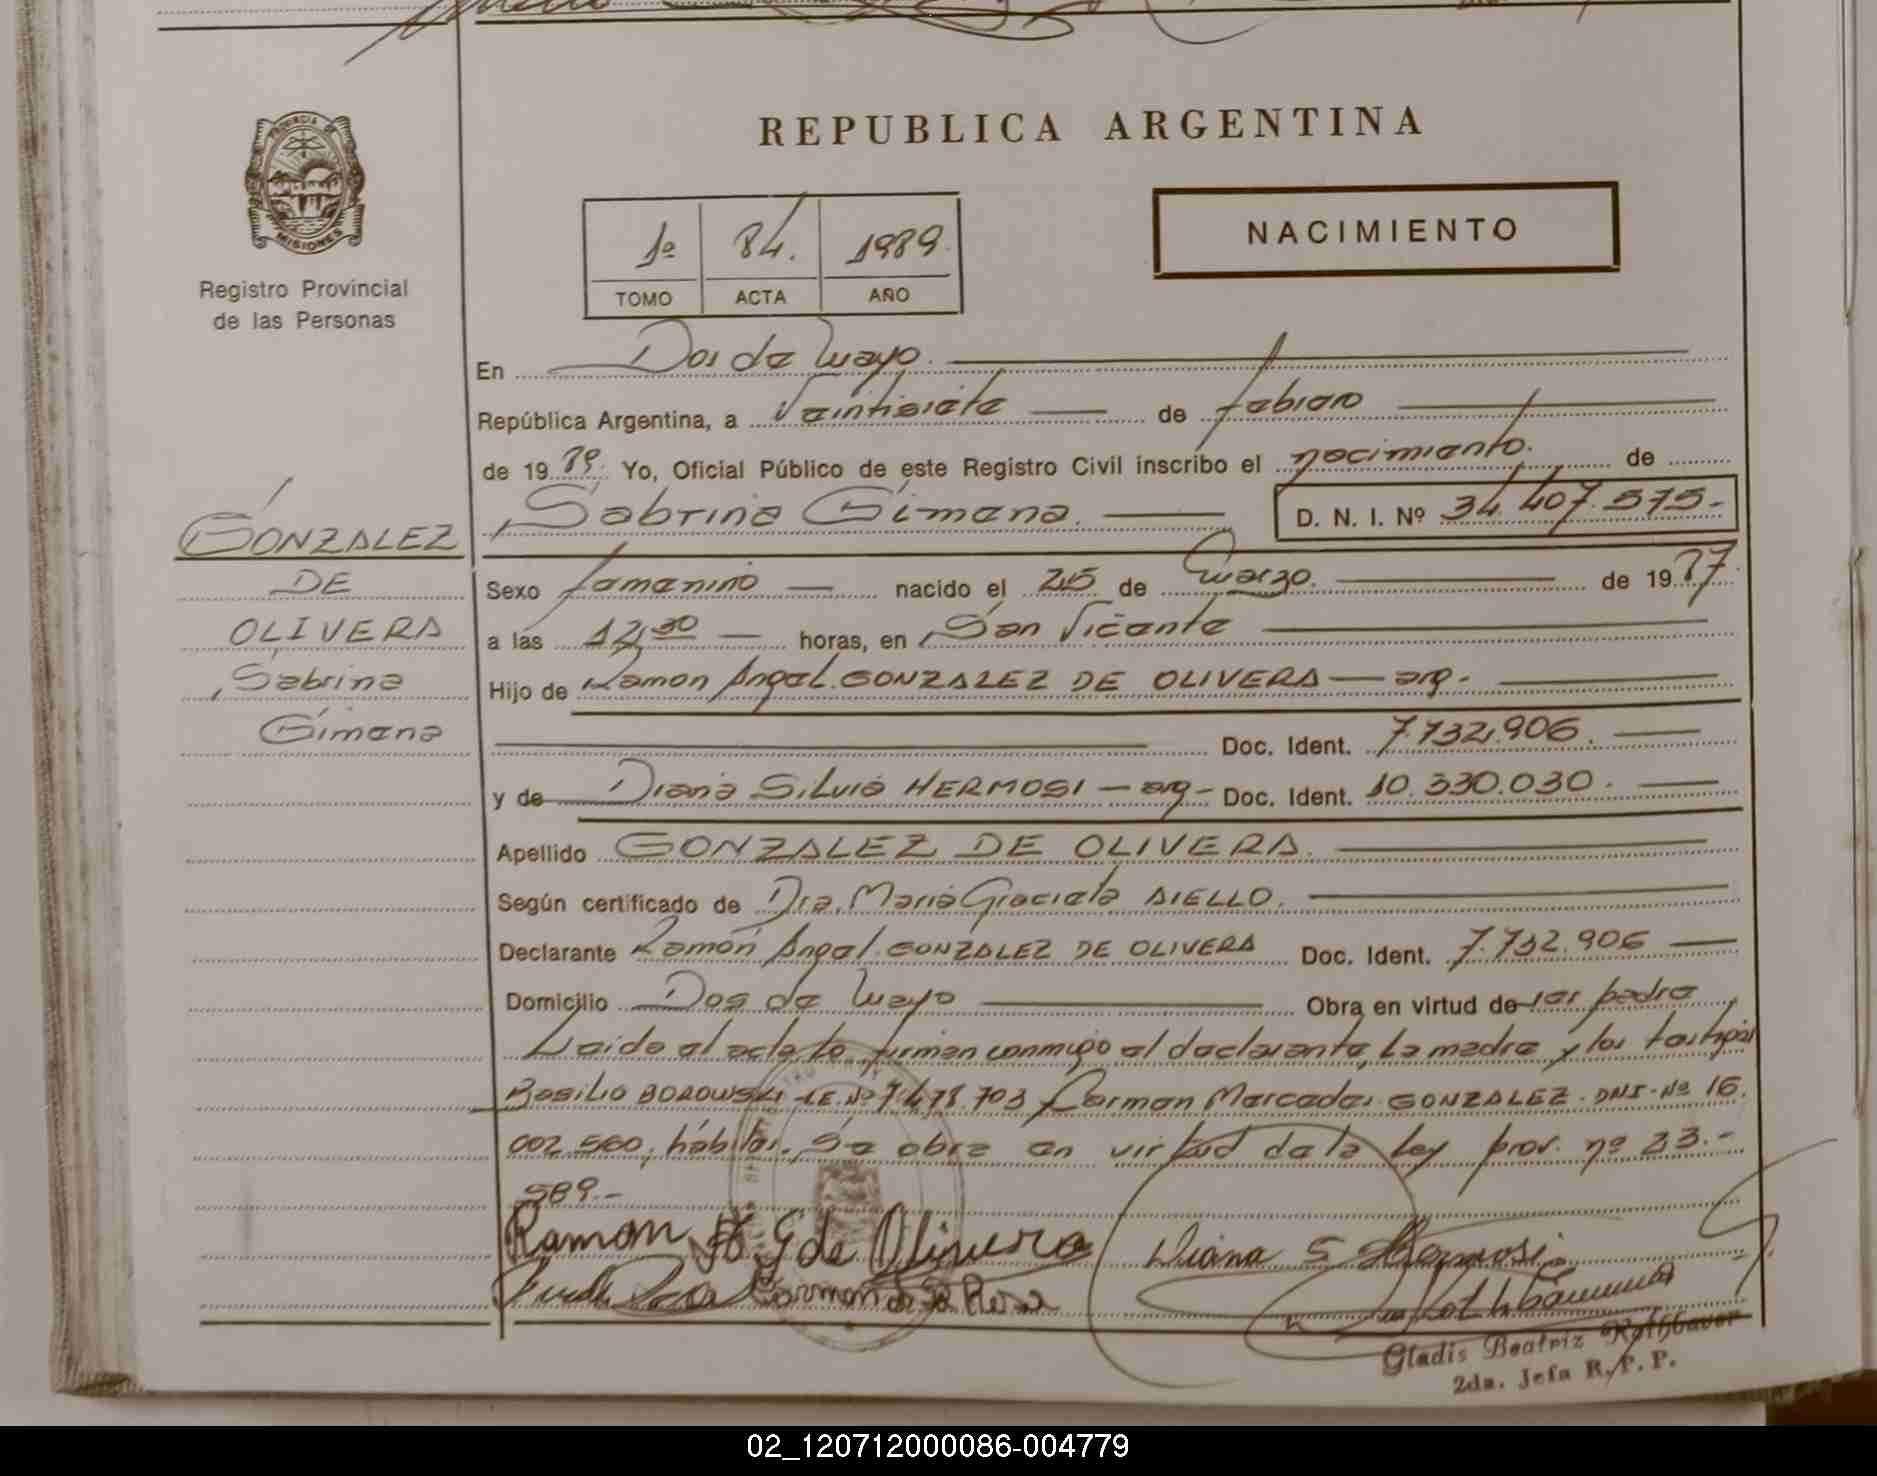 REPUBLICA ARGENTINA
PROVINCIA DE
MISIONES
Registro Provincial
de las Personas
1º 84. 1989.
TOMO ACTA AÑO
NACIMIENTO
En Dos de Mayo.
República Argentina, a Veintisiete de febrero
de 1989. Yo, Oficial Público de este Registro Civil inscribo el nacimiento. de
Sabrina Gimena. D. N. I. Nº 34.407.575.-
GONZALEZ
DE
OLIVERA
Sabrina
Gimena
Sexo femenino nacido el 25 de Marzo. de 19
a las 12,30 horas, en San Vicente
Hijo de Ramon Angel GONZALEZ DE OLIVERA — arg.
Doc. Ident. 7.732.906.
y de Diana Silvia HERMOSI — arg - Doc. Ident. 10.330.030.
Apellido GONZALEZ DE OLIVERA.
Según certificado de Dra. Maria Graciela AIELLO.
Declarante Ramón Angel GONZALEZ DE OLIVERA Doc. Ident. 7.732.906
Domicilio Dos de Mayo Obra en virtud de ser padre
Leida el acta la firman conmigo el declarante, la madre y los testigos
Basilio BOROWSKI L.E. Nº 7.478.703 Carmen Mercedes GONZALEZ. DNI-Nº 16.
002.560, hábiles. Se obra en virtud de la ley prov. nº 23.-
589.-
Ramon A. G de Olivera Diana S Hermosi
Carmen de Rosa
Gladis Beatriz Rothbauer
2da. Jefa R.P.P.
02_120712000086-004779